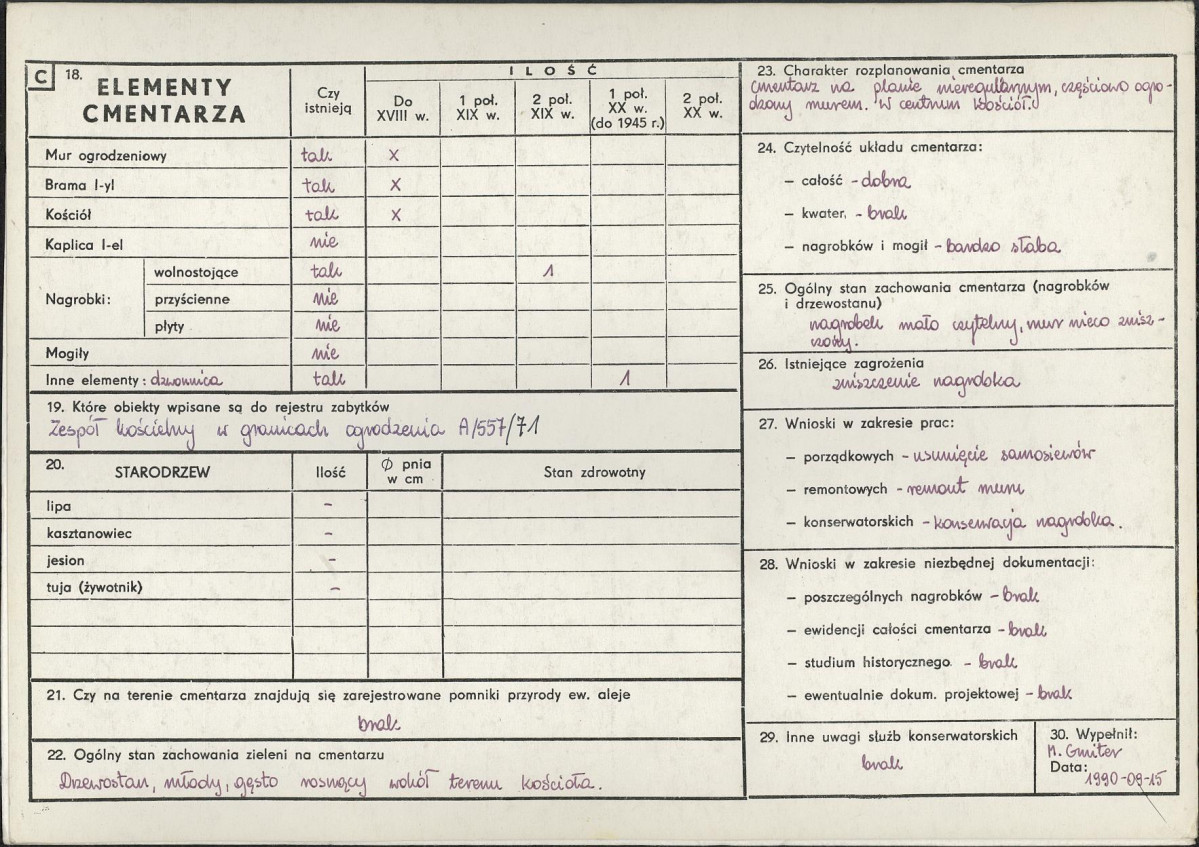 C 18. ELEMENTY CMENTARZA
Czy istnieją
ILOŚĆ
Do XVIII w.
1 poł. XIX w.
2 poł. XIX w.
1 poł. XX w. (do 1945 r.)
2 poł. XX w.
Mur ogrodzeniowy tak X
Brama I-yl tak X
Kościół tak X
Kaplica I-el nie
Nagrobki: wolnostojące tak 1
przyścienne nie
płyty nie
Mogiły nie
Inne elementy: dzwonnica tak 1
19. Które obiekty wpisane są do rejestru zabytków
Zespół kościelny w granicach ogrodzenia A/557/71
20. STARODRZEW Ilość Ø pnia w cm Stan zdrowotny
lipa –
kasztanowiec –
jesion –
tuja (żywotnik) –
21. Czy na terenie cmentarza znajdują się zarejestrowane pomniki przyrody ew. aleje
brak
22. Ogólny stan zachowania zieleni na cmentarzu
Drzewostan, młody, gęsto rosnący wokół terenu kościoła.
23. Charakter rozplanowania cmentarza
Cmentarz na planie nieregularnym, częściowo ogro-
dzony murem. W centrum kościół.
24. Czytelność układu cmentarza:
– całość – dobra
– kwater. – brak
– nagrobków i mogił – bardzo słaba
25. Ogólny stan zachowania cmentarza (nagrobków
i drzewostanu)
nagrobek mało czytelny, mur nieco znisz-
czony.
26. Istniejące zagrożenia
zniszczenie nagrobka
27. Wnioski w zakresie prac:
– porządkowych – usunięcie samosiewów
– remontowych – remont muru
– konserwatorskich – konserwacja nagrobka.
28. Wnioski w zakresie niezbędnej dokumentacji:
– poszczególnych nagrobków – brak
– ewidencji całości cmentarza – brak
– studium historycznego – brak
– ewentualnie dokum. projektowej – brak
29. Inne uwagi służb konserwatorskich
brak
30. Wypełnił:
M. Gmiter
Data:
1990-09-15